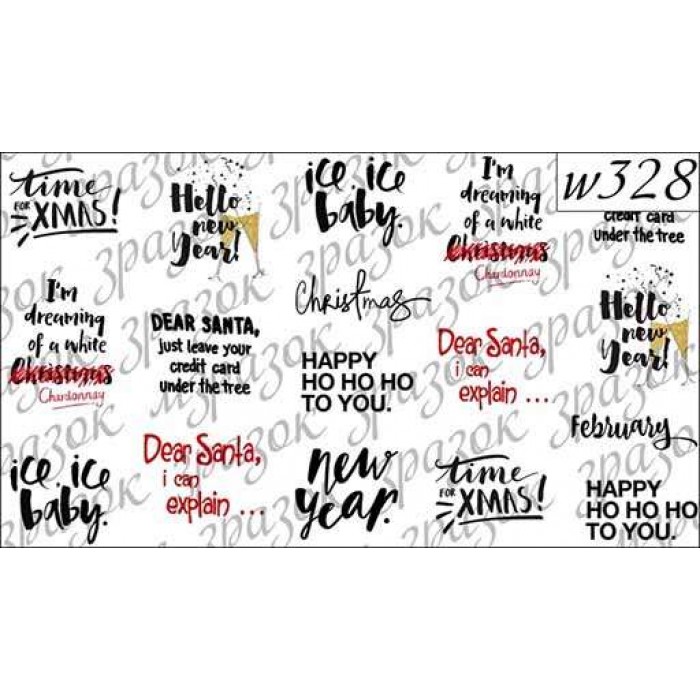 time
FOR XMAS!
I'm
dreaming
of a white
Christmas
Chardonnay
ice, ice
baby.
Hello
new
Year!
DEAR SANTA,
just leave your
credit card
under the tree
Dear Santa,
i can
explain ...
ice, ice
baby.
Christmas
HAPPY
HO HO HO
TO YOU.
new
year.
I'm
dreaming
of a white
Christmas
Chardonnay
Dear Santa,
i can
explain ...
time
FOR XMAS!
w328
credit card
under the tree
Hello
new
Year!
February
HAPPY
HO HO HO
TO YOU.
зразок
зразок
зразок
зразок
зразок
зразок
зразок
зразок